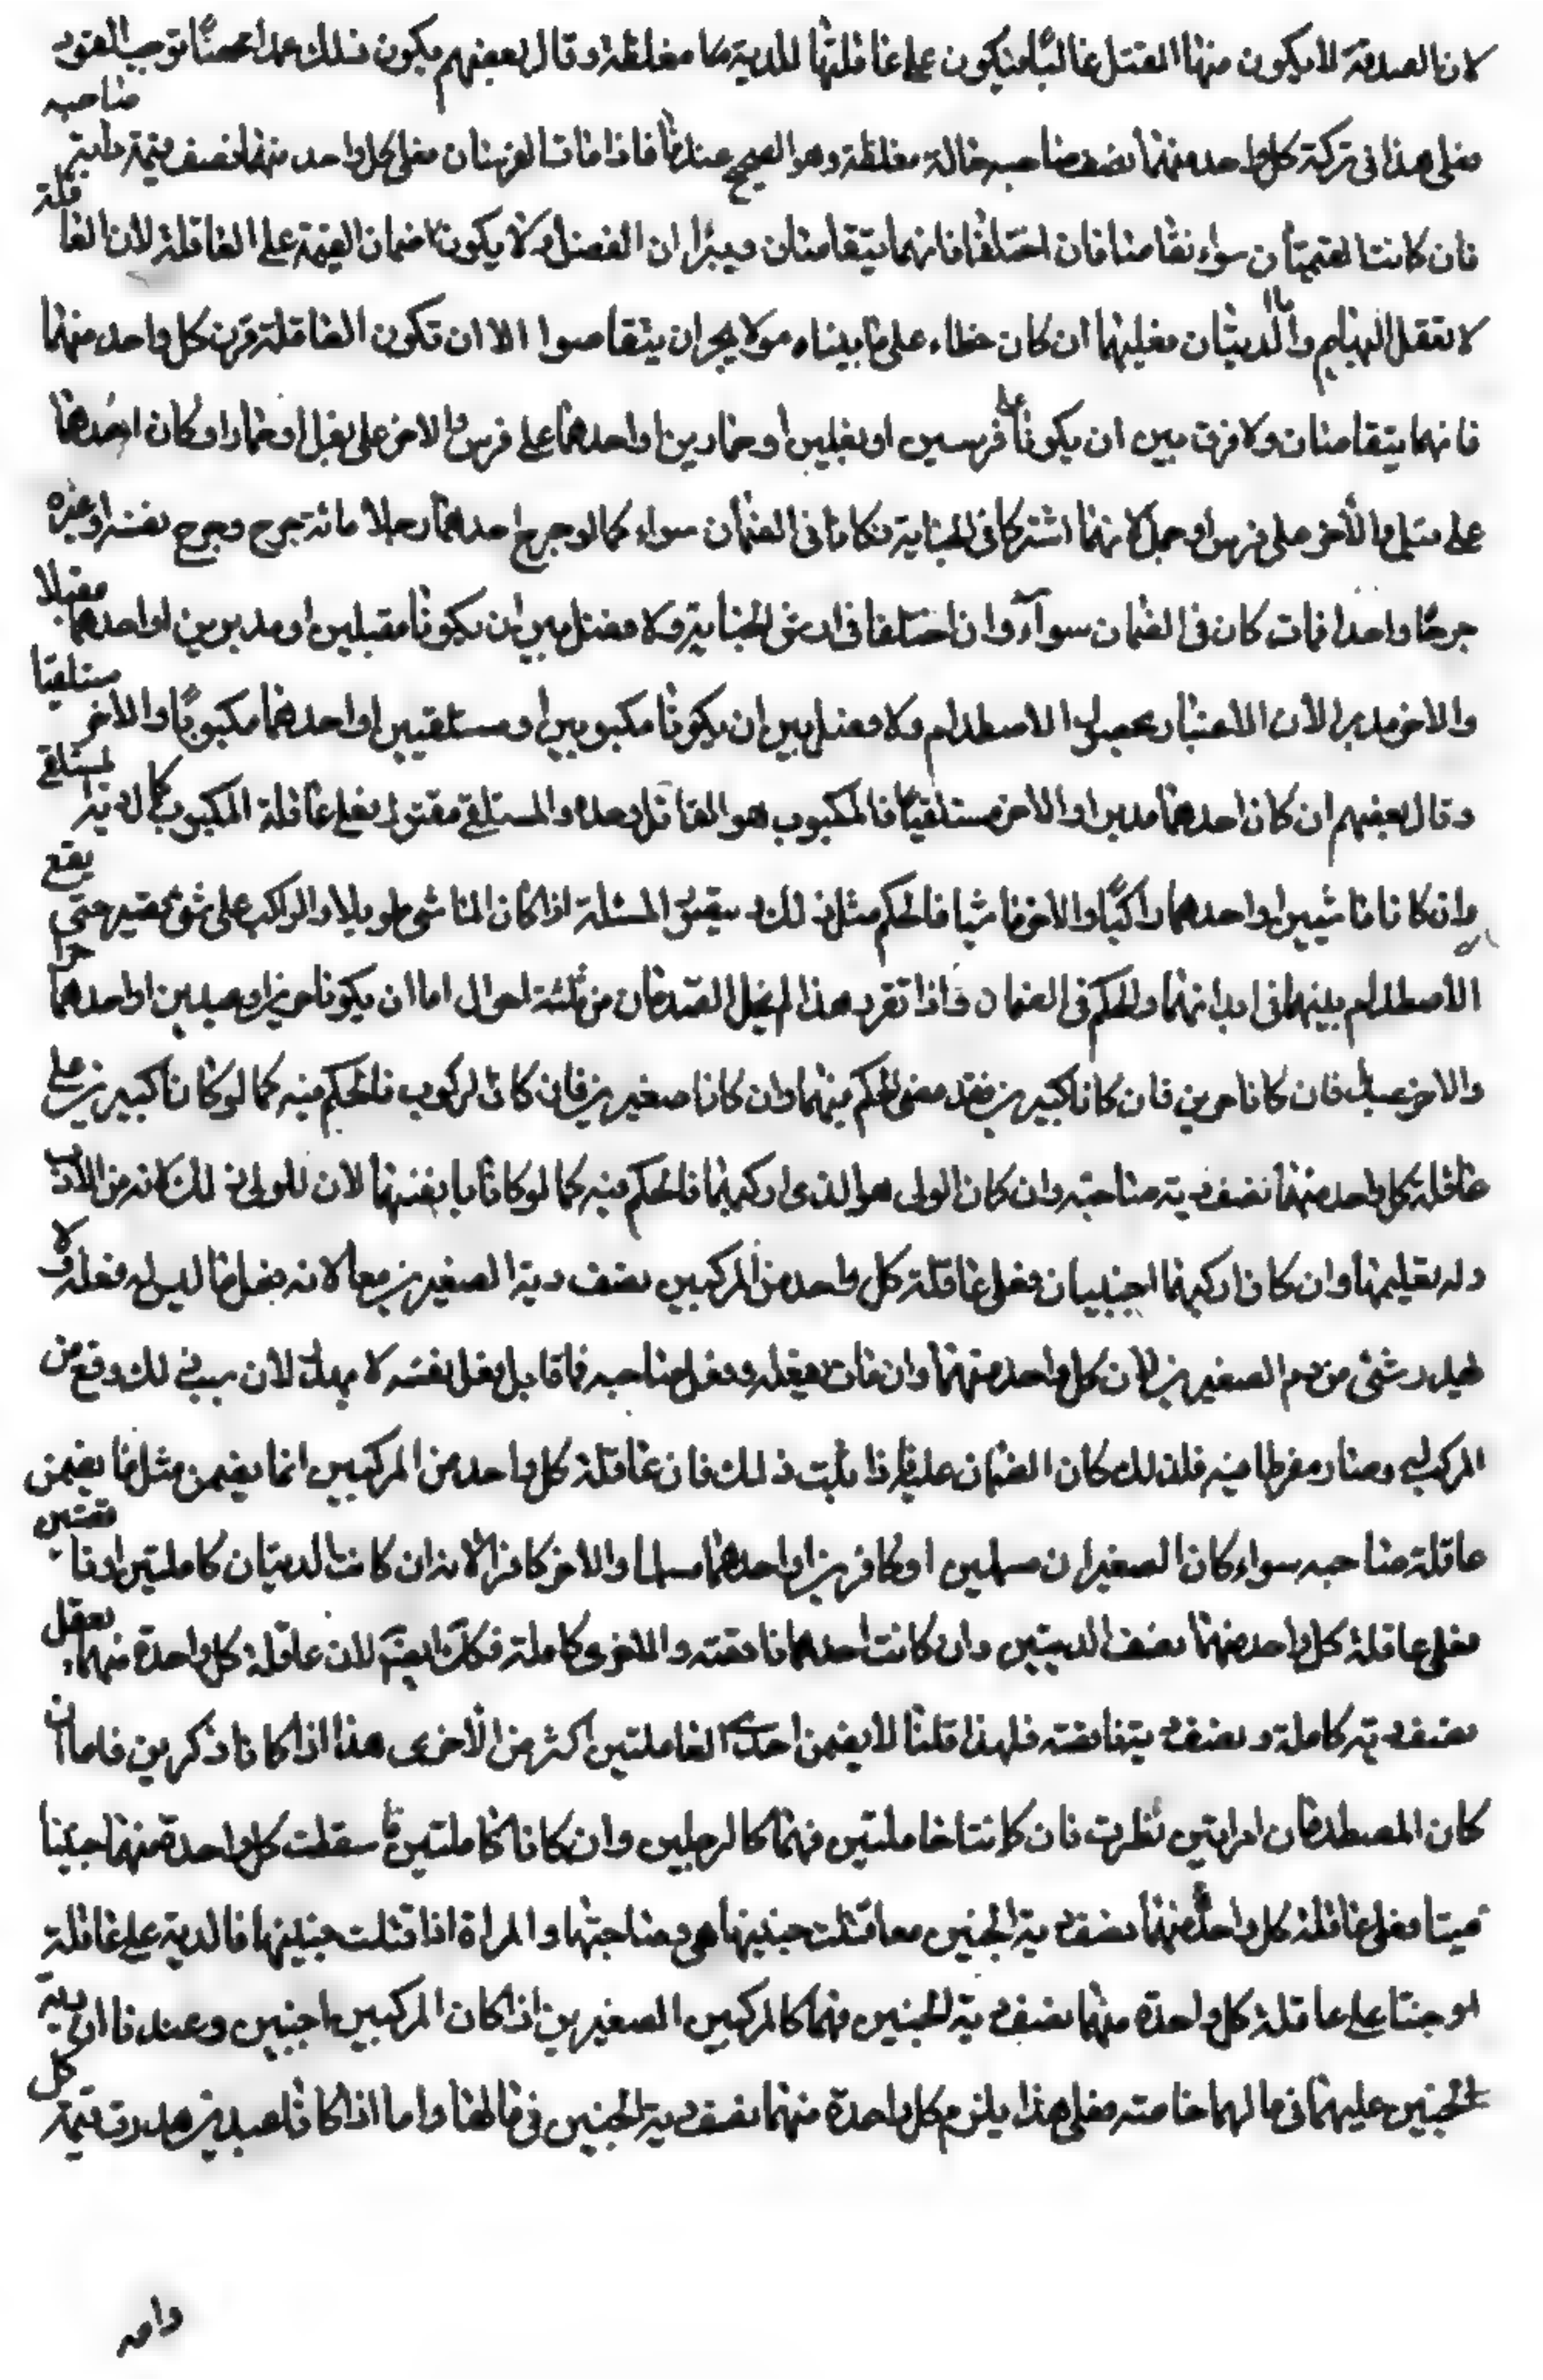 لان الصدمة لا يكون منها القتل غالبا فيكون على عاقلتها الدية مغلظة وقال بعضهم يكون ذلك عمدا محضا توجب القود
فعلى هذا في تركة كل واحد منهما نصف دية صاحبه حالة مغلظة وهو الصحيح عندنا فاذا ماتا الفرسان فعلى كل واحد منهما نصف قيمة دابة صاحبه
فان كانت القيمتان سواء تقاصا فان اختلفا فانهما يتقاصان ويترادان الفضل ولا يكون ضمان القيمة على العاقلة لان العاقلة
لا تعقل البهايم واما الديتان فعليهما ان كان خطاء على ما بيناه ولا يجز ان يتقاصوا الا ان تكون العاقلة ورث كل واحد منهما
فانهما يتقاصان ولا فرق بين ان يكونا على فرسين او بغلين او حمارين او احدهما على فرس والاخر على بغل او حمار او كان احدهما
على فيل والاخر على فرس او جمل لانهما اشتركا في الجناية فكانا في الضمان سواء كما لو جرح احدهما رجلا مائة جرح وجرح نفسه او غيره
جرحا واحدا فمات كان في الضمان سواء وان اختلفا في ارش الجناية ولا فصل بين ان يكونا مقبلين او مدبرين او احدهما مقبلا
والاخر مدبرا لان الاعتبار بحصول الاصطدام ولا فصل بين ان يكونا مكبوبين او مستلقيين او احدهما مكبوبا والاخر مستلقيا
وقال بعضهم ان كان احدهما مدبرا والاخر مستلقيا فالمكبوب هو القاتل وحده والمستلقى مقتول فعلى عاقلة المكبوب كمال دية المستلقى
وان كانا ماشيين او احدهما راكبا والاخر ماشيا فالحكم مثل ذلك يتبين المسئلة اذا كان الماشي طويلا والراكب على شق حقير حتى يقع
الاصطدام بينهما في ابدانهما والحكم في الضمان فاذا تقرر هذا لم يخل المتصادمان من ثلثة احوال اما ان يكونا حرين او عبدين او احدهما حرا
والاخر عبدا فان كانا حرين فان كانا كبيرين فقد مضى الحكم فيهما وان كانا صغيرين فان كانا الركوب فالحكم فيه كما لو كانا كبيرين على
عاقلة كل واحد منهما نصف دية صاحبه وان كان الولى هو الذي اركبهما فالحكم فيه كما لو كانا بانفسهما لان للولى ذلك لانه من الادب
وله تعليمهما وان كان اركبهما اجنبيان فعلى عاقلة كل واحد من المركبين نصف دية الصغيرين معا لانه فعل ما ليس له فعله ولا
يهدر شئ من دم الصغيرين لان كل واحد منهما وان مات بفعله وفعل صاحبه فما قابل فعل نفسه لا يهدر لان سبب ذلك وقع من
المركب له وصار مفرطا فيه فلذلك كان الضمان عليه فاذا ثبت ذلك فان عاقلة كل واحد من المركبين انما يضمن مثل ما يضمن
عاقلة صاحبه سواء كان الصغيران مسلمين او كافرين او احدهما مسلما والاخر كافرا لانه ان كانت الديتان كاملتين او ناقصتين
فعلى عاقلة كل واحد منهما نصف الديتين وان كانت احدهما ناقصة والاخرى كاملة فكذلك ايضا لان عاقلة كل واحدة منهما تعقل
نصف دية كاملة ونصف دية ناقصة فلهذا قلنا لا يضمن احدى العاقلتين اكثر من الاخرى هذا اذا كانا ذكرين فاما ان
كان المصطدمان امراتين نظرت فان كانتا حاملتين فهما كالرجلين وان كانا حاملتين فاسقطت كل واحدة منهما جنينا
ميتا فعلى عاقلة كل واحدة منهما نصف دية الجنين معا قتلت جنينها هي وصاحبتها والمراة اذا قتلت جنينها فالدية على عاقلة
على عاقلة كل واحدة منهما نصف دية الجنين فهما كالمركبين الصغيرين اذا كان المركبين اجنبيين وعندنا ان دية
الجنين عليهما في مالهما خاصة فعلى هذا يلزم كل واحدة منهما نصف دية الجنين في مالها واما اذا كانا عبدين هدرت قيمة كل